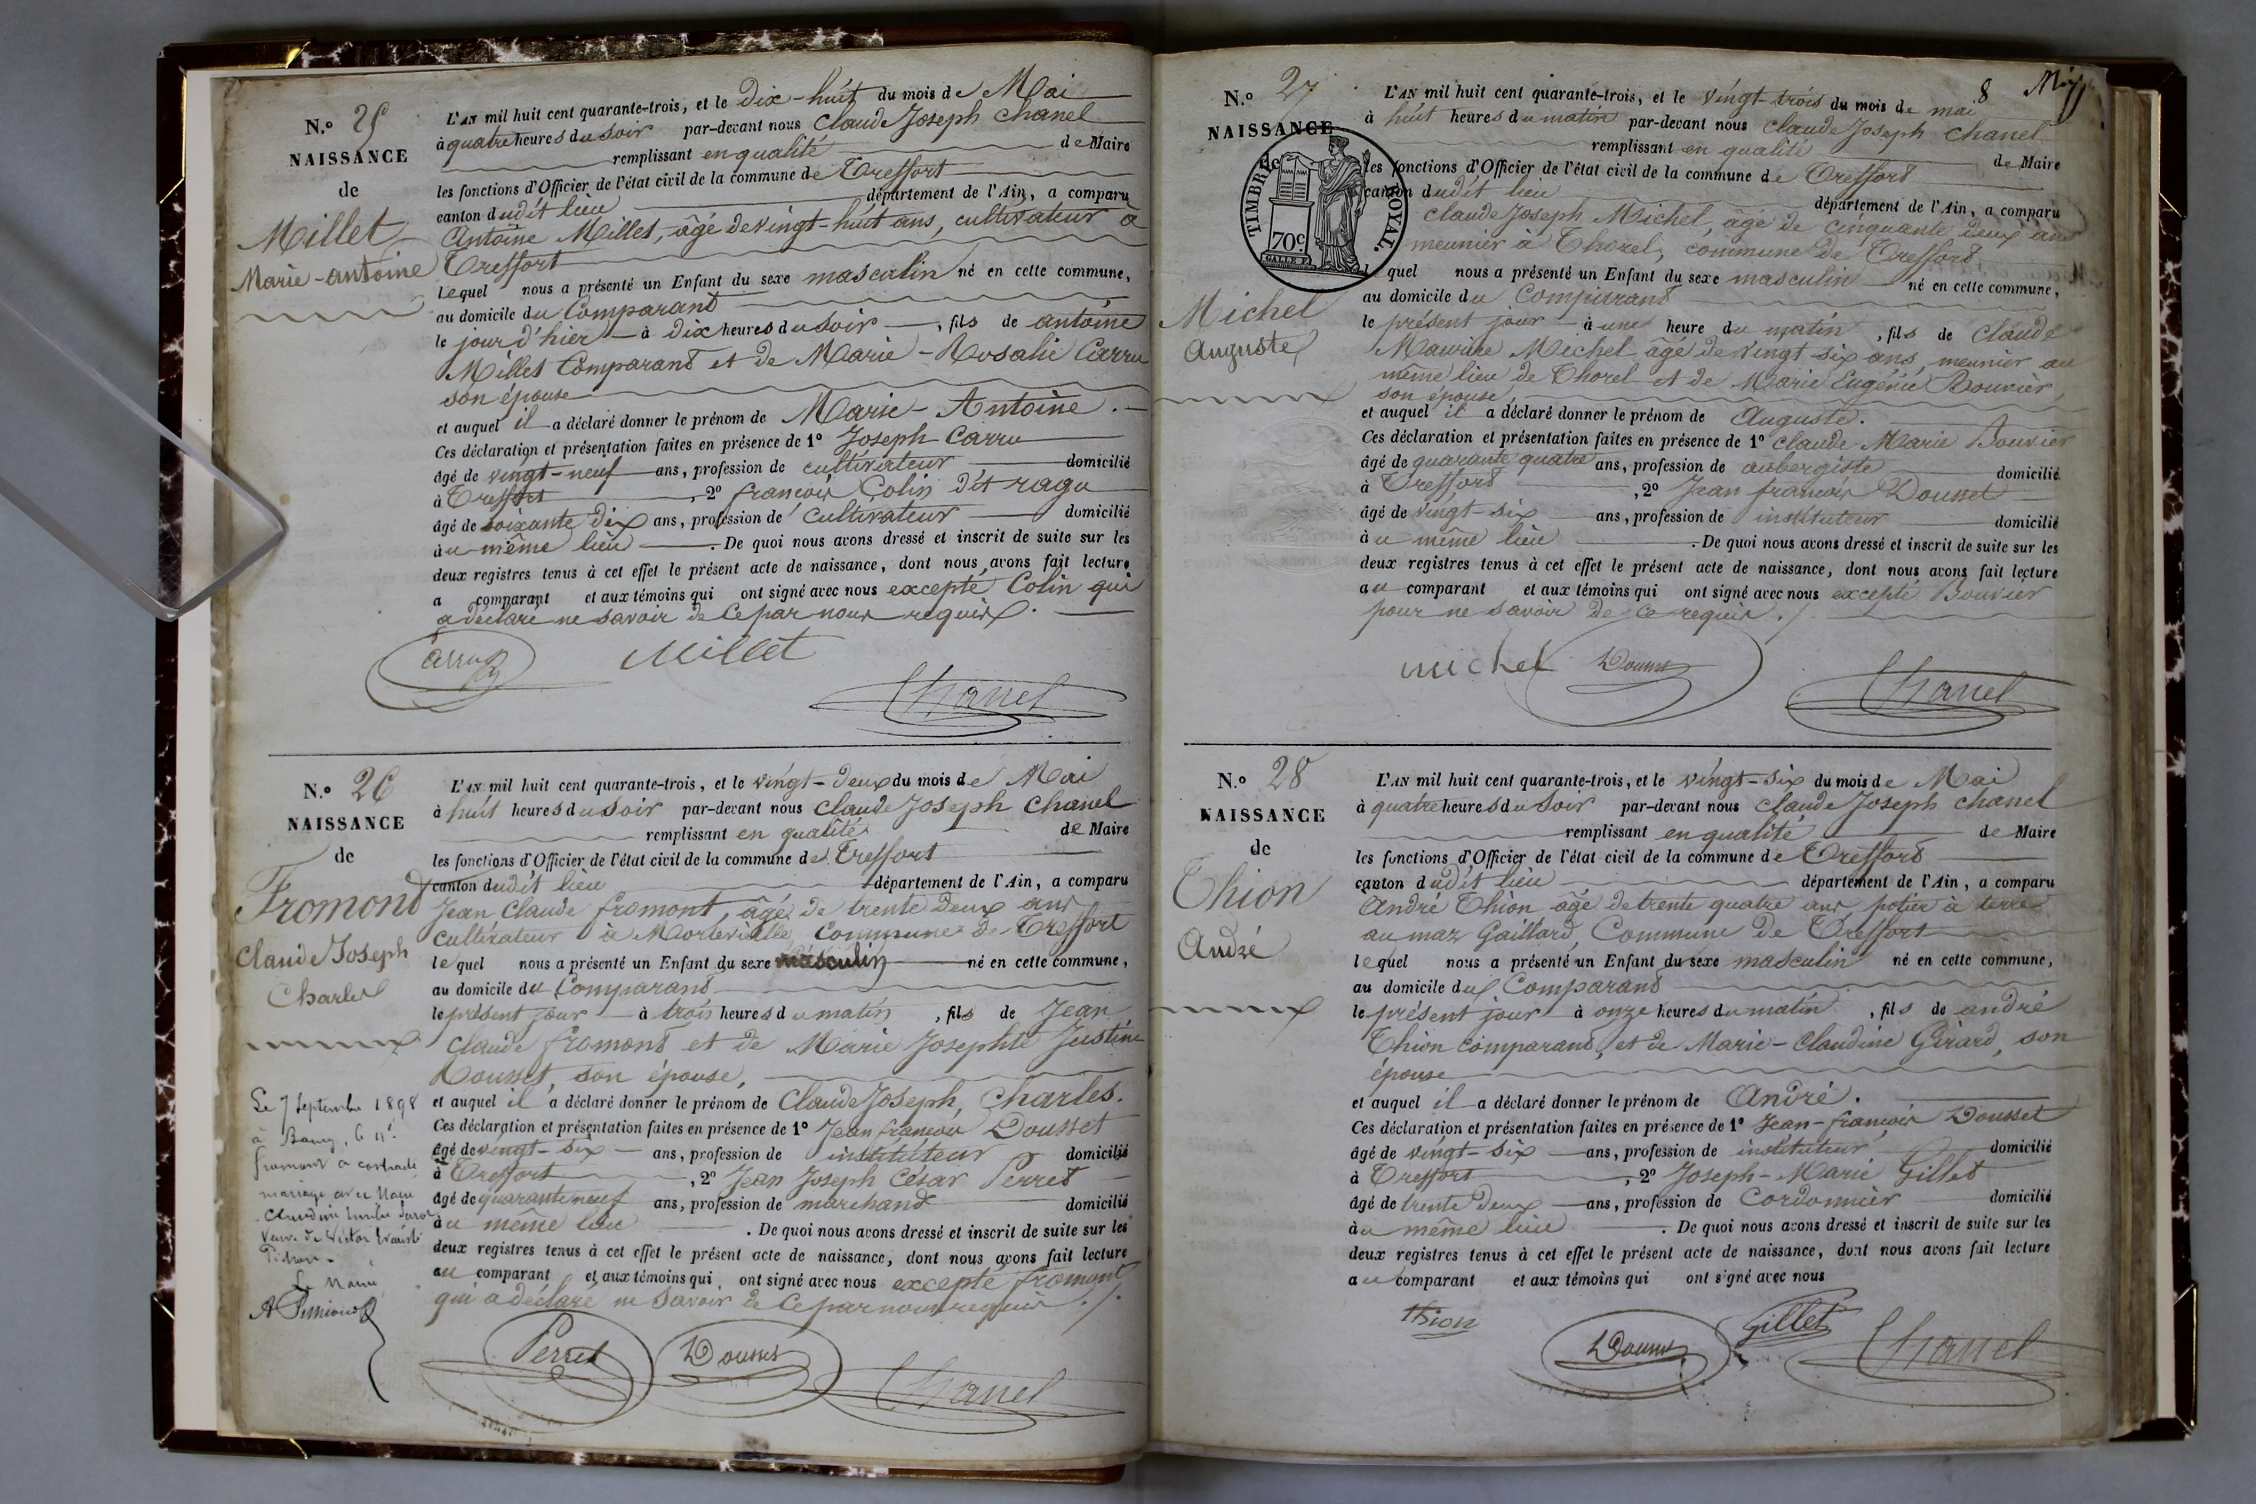 N.º 25
NAISSANCE
de
Millet
Marie-antoine
L'AN mil huit cent quarante-trois, et le Dix-huit du mois de Mai
à quatre heures du soir par-devant nous Claude Joseph Chanel
remplissant en qualité de Maire
les fonctions d'Officier de l'état civil de la commune de Treffort
canton dudit lieu département de l'Ain, a comparu
Antoine Millet, âgé de vingt-huit ans, cultivateur à
Treffort
lequel nous a présenté un Enfant du sexe masculin né en cette commune,
au domicile du Comparant
le jour d'hier à dix heures du soir, fils de antoine
Millet Comparant et de Marie-Rosalie Carru
son épouse
et auquel il a déclaré donner le prénom de Marie-Antoine.
Ces déclaration et présentation faites en présence de 1º Joseph Carru
âgé de vingt-neuf ans, profession de cultivateur domicilié
à Treffort, 2º françois Colin dit ragu
âgé de soixante dix ans, profession de cultivateur domicilié
au même lieu. De quoi nous avons dressé et inscrit de suite sur les
deux registres tenus à cet effet le présent acte de naissance, dont nous avons fait lecture
a comparant et aux témoins qui ont signé avec nous excepté Colin qui
a déclaré ne savoir de ce par nous requis.
Carru Millet
Chanel
N.º 26
NAISSANCE
de
Fromond
Claude Joseph
Charles
Le 7 Septembre 1898
à Bourg,
fromont a contracté
mariage avec Marie
Claudine
veuve de Victor
Le Maire
L'AN mil huit cent quarante-trois, et le vingt-deux du mois de Mai
à huit heures du soir par-devant nous Claude Joseph Chanel
remplissant en qualité de Maire
les fonctions d'Officier de l'état civil de la commune de Treffort
canton dudit lieu département de l'Ain, a comparu
Jean Claude fromont, âgé de trente deux ans
cultivateur à Morlevielle Commune de Treffort
lequel nous a présenté un Enfant du sexe masculin né en cette commune,
au domicile du Comparant
le présent jour à trois heures du matin, fils de Jean
Claude fromont et de Marie Josephte Justine
Dousset, son épouse,
et auquel il a déclaré donner le prénom de Claude Joseph, Charles.
Ces déclaration et présentation faites en présence de 1º Jean françois Dousset
âgé de vingt-six ans, profession de instituteur domicilié
à Treffort, 2º Jean Joseph César Perret
âgé de quarante neuf ans, profession de marchand domicilié
au même lieu. De quoi nous avons dressé et inscrit de suite sur les
deux registres tenus à cet effet le présent acte de naissance, dont nous avons fait lecture
au comparant et aux témoins qui ont signé avec nous excepté fromont
qui a déclaré ne savoir de ce par nous requis./.
Perret Dousset Chanel
8
N.º 27
NAISSANCE
TIMBRE ROYAL.
70c
Michel
Auguste
L'AN mil huit cent quarante-trois, et le vingt-trois du mois de mai
à huit heures du matin par-devant nous Claude Joseph Chanel
remplissant en qualité de Maire
les fonctions d'Officier de l'état civil de la commune de Treffort
canton dudit lieu département de l'Ain, a comparu
Claude Joseph Michel, âgé de cinquante deux ans
meunier à Thorel, commune de Treffort
lequel nous a présenté un Enfant du sexe masculin né en cette commune,
au domicile du Comparant
le présent jour à une heure du matin, fils de Claude
Maurice Michel âgé de vingt six ans, meunier au
même lieu de Thorel et de Marie Eugénie Bouvier,
son épouse,
et auquel il a déclaré donner le prénom de Auguste.
Ces déclaration et présentation faites en présence de 1º Claude Marie Bouvier
âgé de quarante quatre ans, profession de aubergiste domicilié
à Treffort, 2º Jean françois Dousset
âgé de vingt-six ans, profession de instituteur domicilié
au même lieu. De quoi nous avons dressé et inscrit de suite sur les
deux registres tenus à cet effet le présent acte de naissance, dont nous avons fait lecture
au comparant et aux témoins qui ont signé avec nous excepté Bouvier
pour ne savoir de ce requis./.
michel Dousset Chanel
N.º 28
NAISSANCE
de
Thion
André
L'AN mil huit cent quarante-trois, et le vingt-six du mois de Mai
à quatre heures du soir par-devant nous Claude Joseph Chanel
remplissant en qualité de Maire
les fonctions d'Officier de l'état civil de la commune de Treffort
canton dudit lieu département de l'Ain, a comparu
André Thion âgé de trente quatre ans, potier à terre
au maz Gaillard, Commune de Treffort
lequel nous a présenté un Enfant du sexe masculin né en cette commune,
au domicile du Comparant
le présent jour à onze heures du matin, fils de andré
Thion comparant, et de Marie-Claudine Girard, son
épouse
et auquel il a déclaré donner le prénom de André.
Ces déclaration et présentation faites en présence de 1º Jean-françois Dousset
âgé de vingt-six ans, profession de instituteur domicilié
à Treffort, 2º Joseph-Marie Gillet
âgé de trente deux ans, profession de Cordonnier domicilié
au même lieu. De quoi nous avons dressé et inscrit de suite sur les
deux registres tenus à cet effet le présent acte de naissance, dont nous avons fait lecture
au comparant et aux témoins qui ont signé avec nous
thion Dousset Gillet Chanel